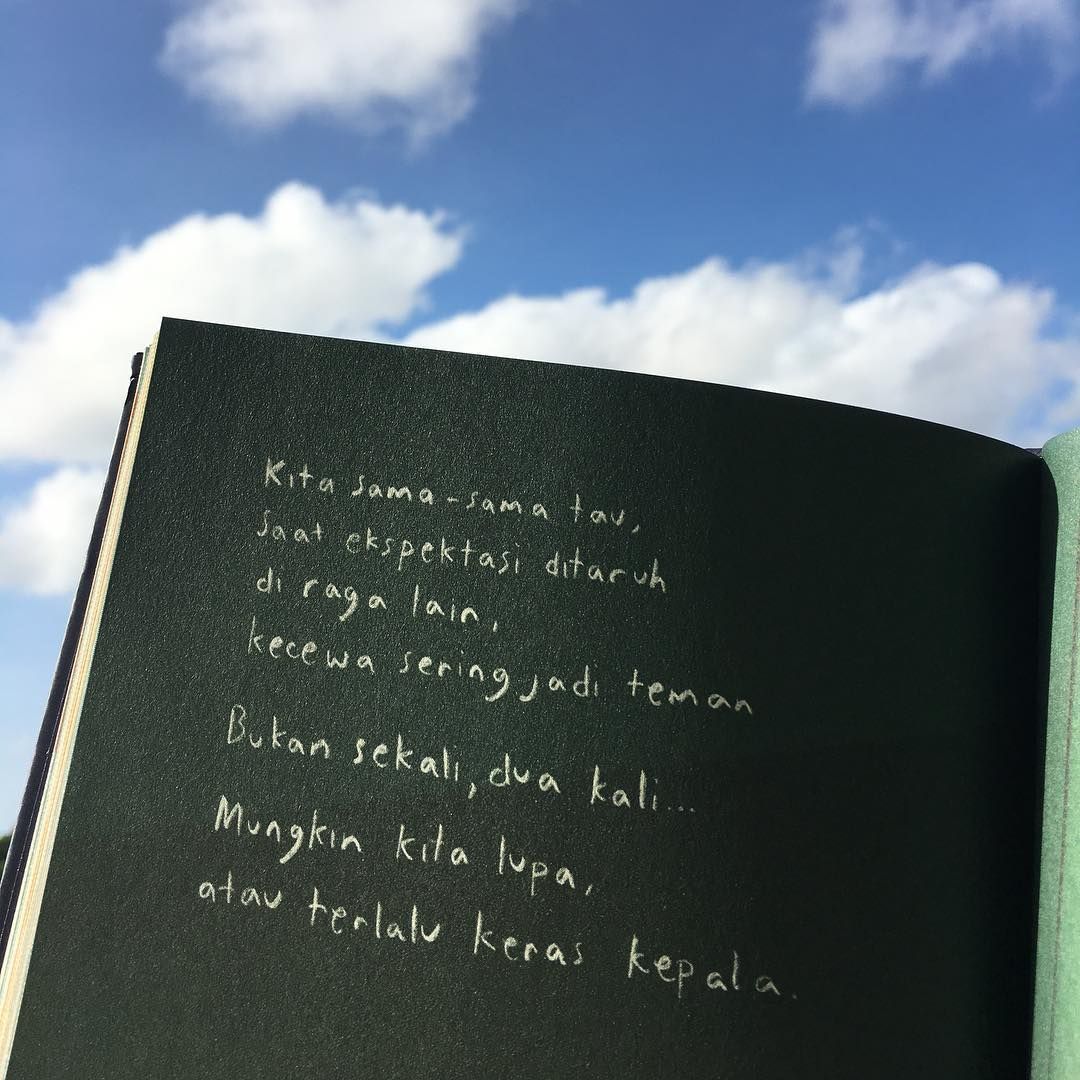 Kita sama-sama tau,
saat ekspektasi ditaruh
di raga lain,
kecewa sering jadi teman
Bukan sekali, dua kali...
Mungkin kita lupa,
atau terlalu keras kepala.